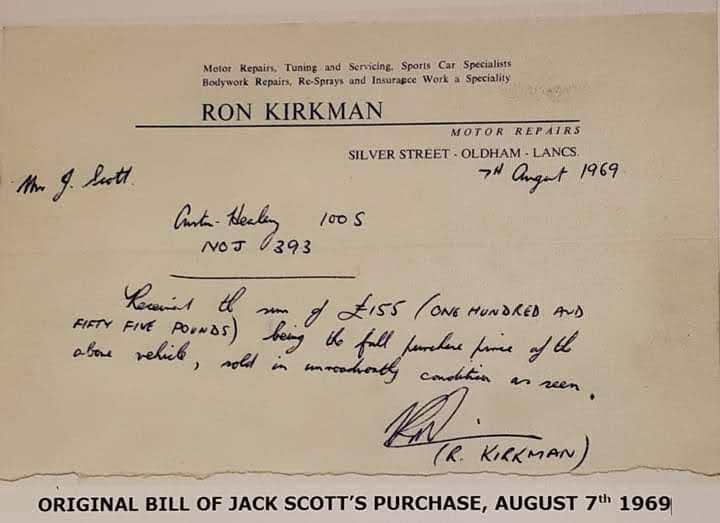 Motor Repairs, Tuning and Servicing, Sports Car Specialists
Bodywork Repairs, Re-Sprays and Insurance Work a Speciality
RON KIRKMAN
MOTOR REPAIRS
SILVER STREET - OLDHAM - LANCS.
7th August 1969
Mr J. Scott.
Austin-Healey 100S
NOJ 393
Received the sum of £155 (ONE HUNDRED AND
FIFTY FIVE POUNDS) being the full purchase price of the
above vehicle, sold in unroadworthy condition as seen.
(R. KIRKMAN)
ORIGINAL BILL OF JACK SCOTT'S PURCHASE, AUGUST 7th 1969